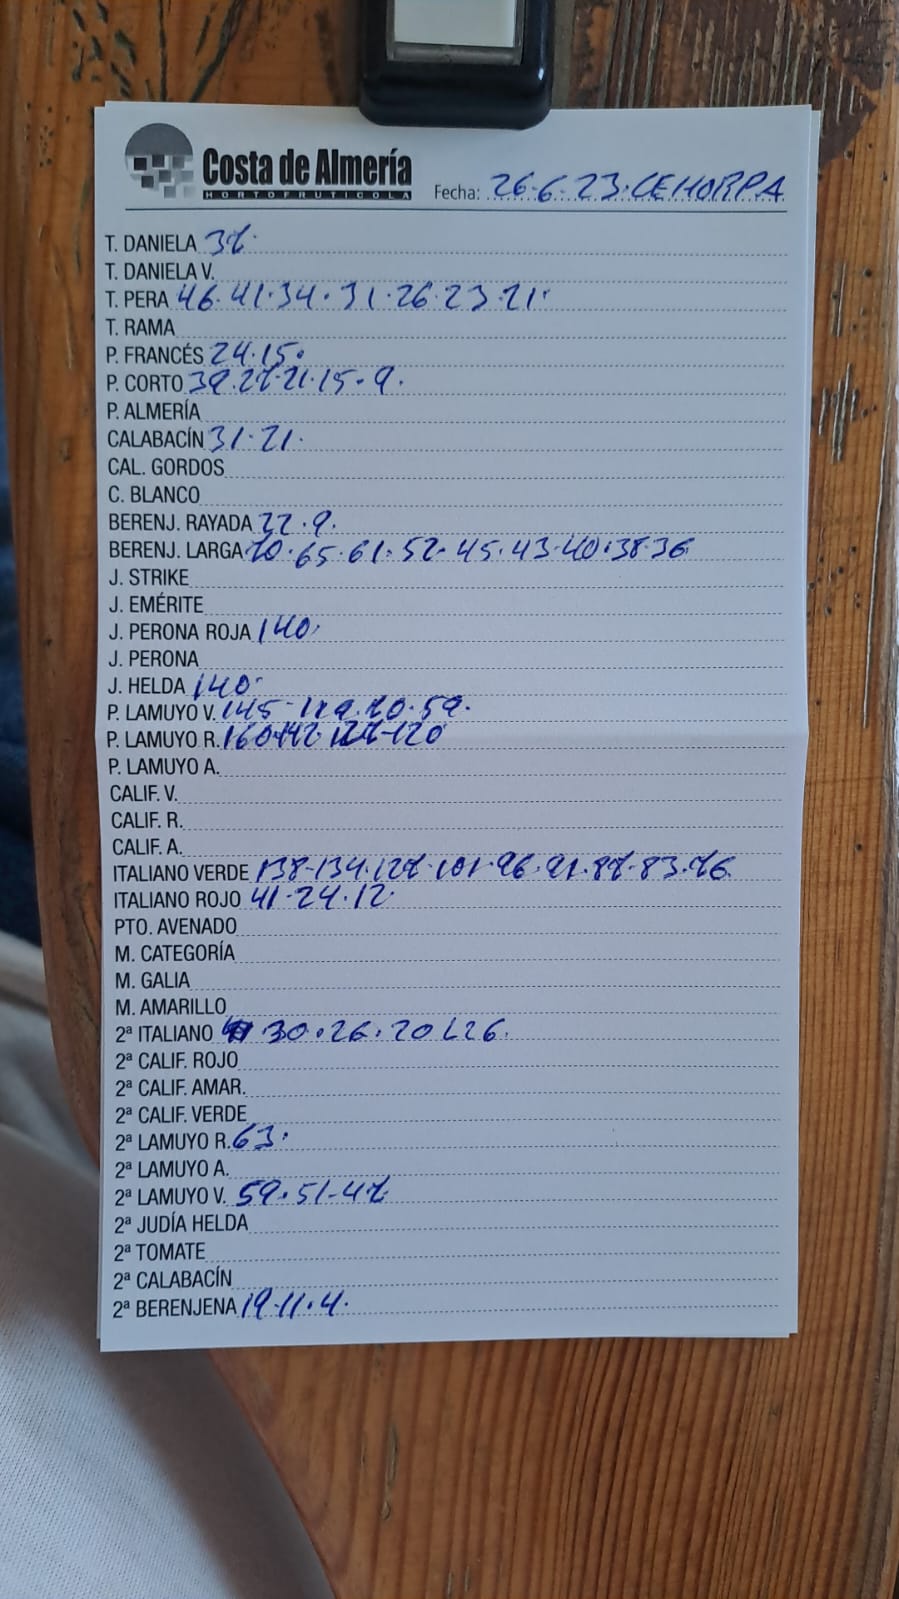 Costa de Almería
HORTOFRUTICOLA
Fecha: 26.6.23.CEHORPA
T. DANIELA 37.
T. DANIELA V.
T. PERA 46.41.34.31.26.23.21.
T. RAMA
P. FRANCÉS 24.15.
P. CORTO 39.27.21.15.9.
P. ALMERÍA
CALABACÍN 31.21.
CAL. GORDOS
C. BLANCO
BERENJ. RAYADA 22.9.
BERENJ. LARGA 70.65.61.52.45.43.40.38.36
J. STRIKE
J. EMÉRITE
J. PERONA ROJA 140.
J. PERONA
J. HELDA 140.
P. LAMUYO V. 145- 70.59.
P. LAMUYO R. 160 142 127-120
P. LAMUYO A.
CALIF. V.
CALIF. R.
CALIF. A.
ITALIANO VERDE 138-134.127.101.96.91.87-83.76
ITALIANO ROJO 41-24.12
PTO. AVENADO
M. CATEGORÍA
M. GALIA
M. AMARILLO
2ª ITALIANO 30.26.20
2ª CALIF. ROJO
2ª CALIF. AMAR.
2ª CALIF. VERDE
2ª LAMUYO R. 63.
2ª LAMUYO A.
2ª LAMUYO V. 59.51-47
2ª JUDÍA HELDA
2ª TOMATE
2ª CALABACÍN
2ª BERENJENA 19.11.4.